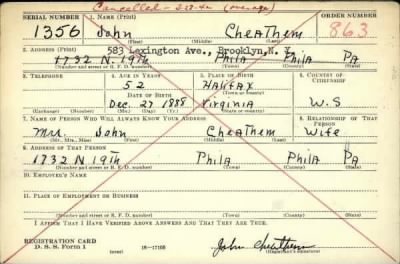 Cancelled - 3-27-42 (overage)
SERIAL NUMBER 1. NAME (Print) ORDER NUMBER
1356 John CheAThem 863
(First) (Middle) (Last)
583 Lexington Ave., Brooklyn, N. Y.
2. ADDRESS (Print)
1732 N. 19th Phila Phila PA
(Number and street or R. F. D. number) (Town) (County) (State)
3. TELEPHONE 4. AGE IN YEARS 5. PLACE OF BIRTH 6. COUNTRY OF CITIZENSHIP
52 HALIFAX
DATE OF BIRTH (Town or county)
Dec. 27 1888 Virginia U.S
(Exchange) (Number) (Mo.) (Day) (Yr.) (State or country)
7. NAME OF PERSON WHO WILL ALWAYS KNOW YOUR ADDRESS 8. RELATIONSHIP OF THAT PERSON
Mrs. John CheAThem Wife
(Mr., Mrs., Miss) (First) (Middle) (Last)
9. ADDRESS OF THAT PERSON
1732 N 19Th Phila Phila PA
(Number and street or R. F. D. number) (Town) (County) (State)
10. EMPLOYER'S NAME
11. PLACE OF EMPLOYMENT OR BUSINESS
(Number and street or R. F. D. number) (Town) (County) (State)
I AFFIRM THAT I HAVE VERIFIED ABOVE ANSWERS AND THAT THEY ARE TRUE.
REGISTRATION CARD
D. S. S. Form 1 (over) 16-17105 John Cheathem